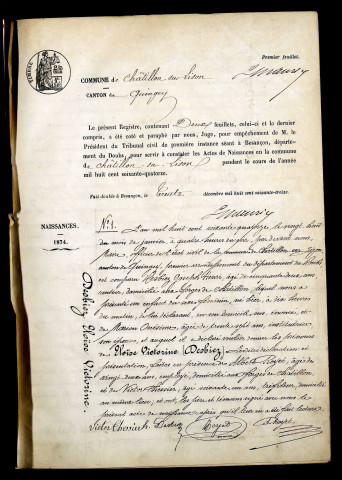 Premier feuillet.
COMMUNE de Châtillon sur Lison
CANTON de Quingey
Le présent Registre, contenant Deux feuillets, celui-ci et le dernier
compris, a été coté et paraphé par nous, Juge, pour empêchement de M. le
Président du Tribunal civil de première instance séant à Besançon, départe-
ment du Doubs, pour servir à constater les Actes de Naissances en la commune
de Châtillon sur Lison pendant le cours de l'année
mil huit cent soixante-quatorze.
Fait double à Besançon, le trente décembre mil huit cent soixante-treize.
NAISSANCES.
1874.
N° 1.
Desbiez Eloïse Victorine.
L'an mil huit cent soixante quatorze le vingt huit
du mois de janvier à quatre heures du soir par devant nous
Maire officier de l'état civil de la commune de Châtillon sur Lison
canton de Quingey, département du Doubs
est comparu Desbiez Joseph, âgé de cinquante deux ans
domicilié aux forges de Châtillon lequel nous a
présenté un enfant du sexe féminin, né hier, à six heures
du matin, de lui déclarant, en son domicile
âgée de trente sept ans, institutrice
son épouse, et auquel il a déclaré vouloir donner les prénoms
de Eloïse Victorine (Desbiez) Lesdites déclaration et
présentation faites en présence de Albert Royet, âgé de
vingt ans, employé, domicilié aux forges de Châtillon
et de Victor, âgé soixante un ans, tréfileur, domicilié
au même lieu, et ont, les père et témoins signé avec nous le
présent acte de naissance après qu'il leur en a été fait lecture
Desbiez Royet